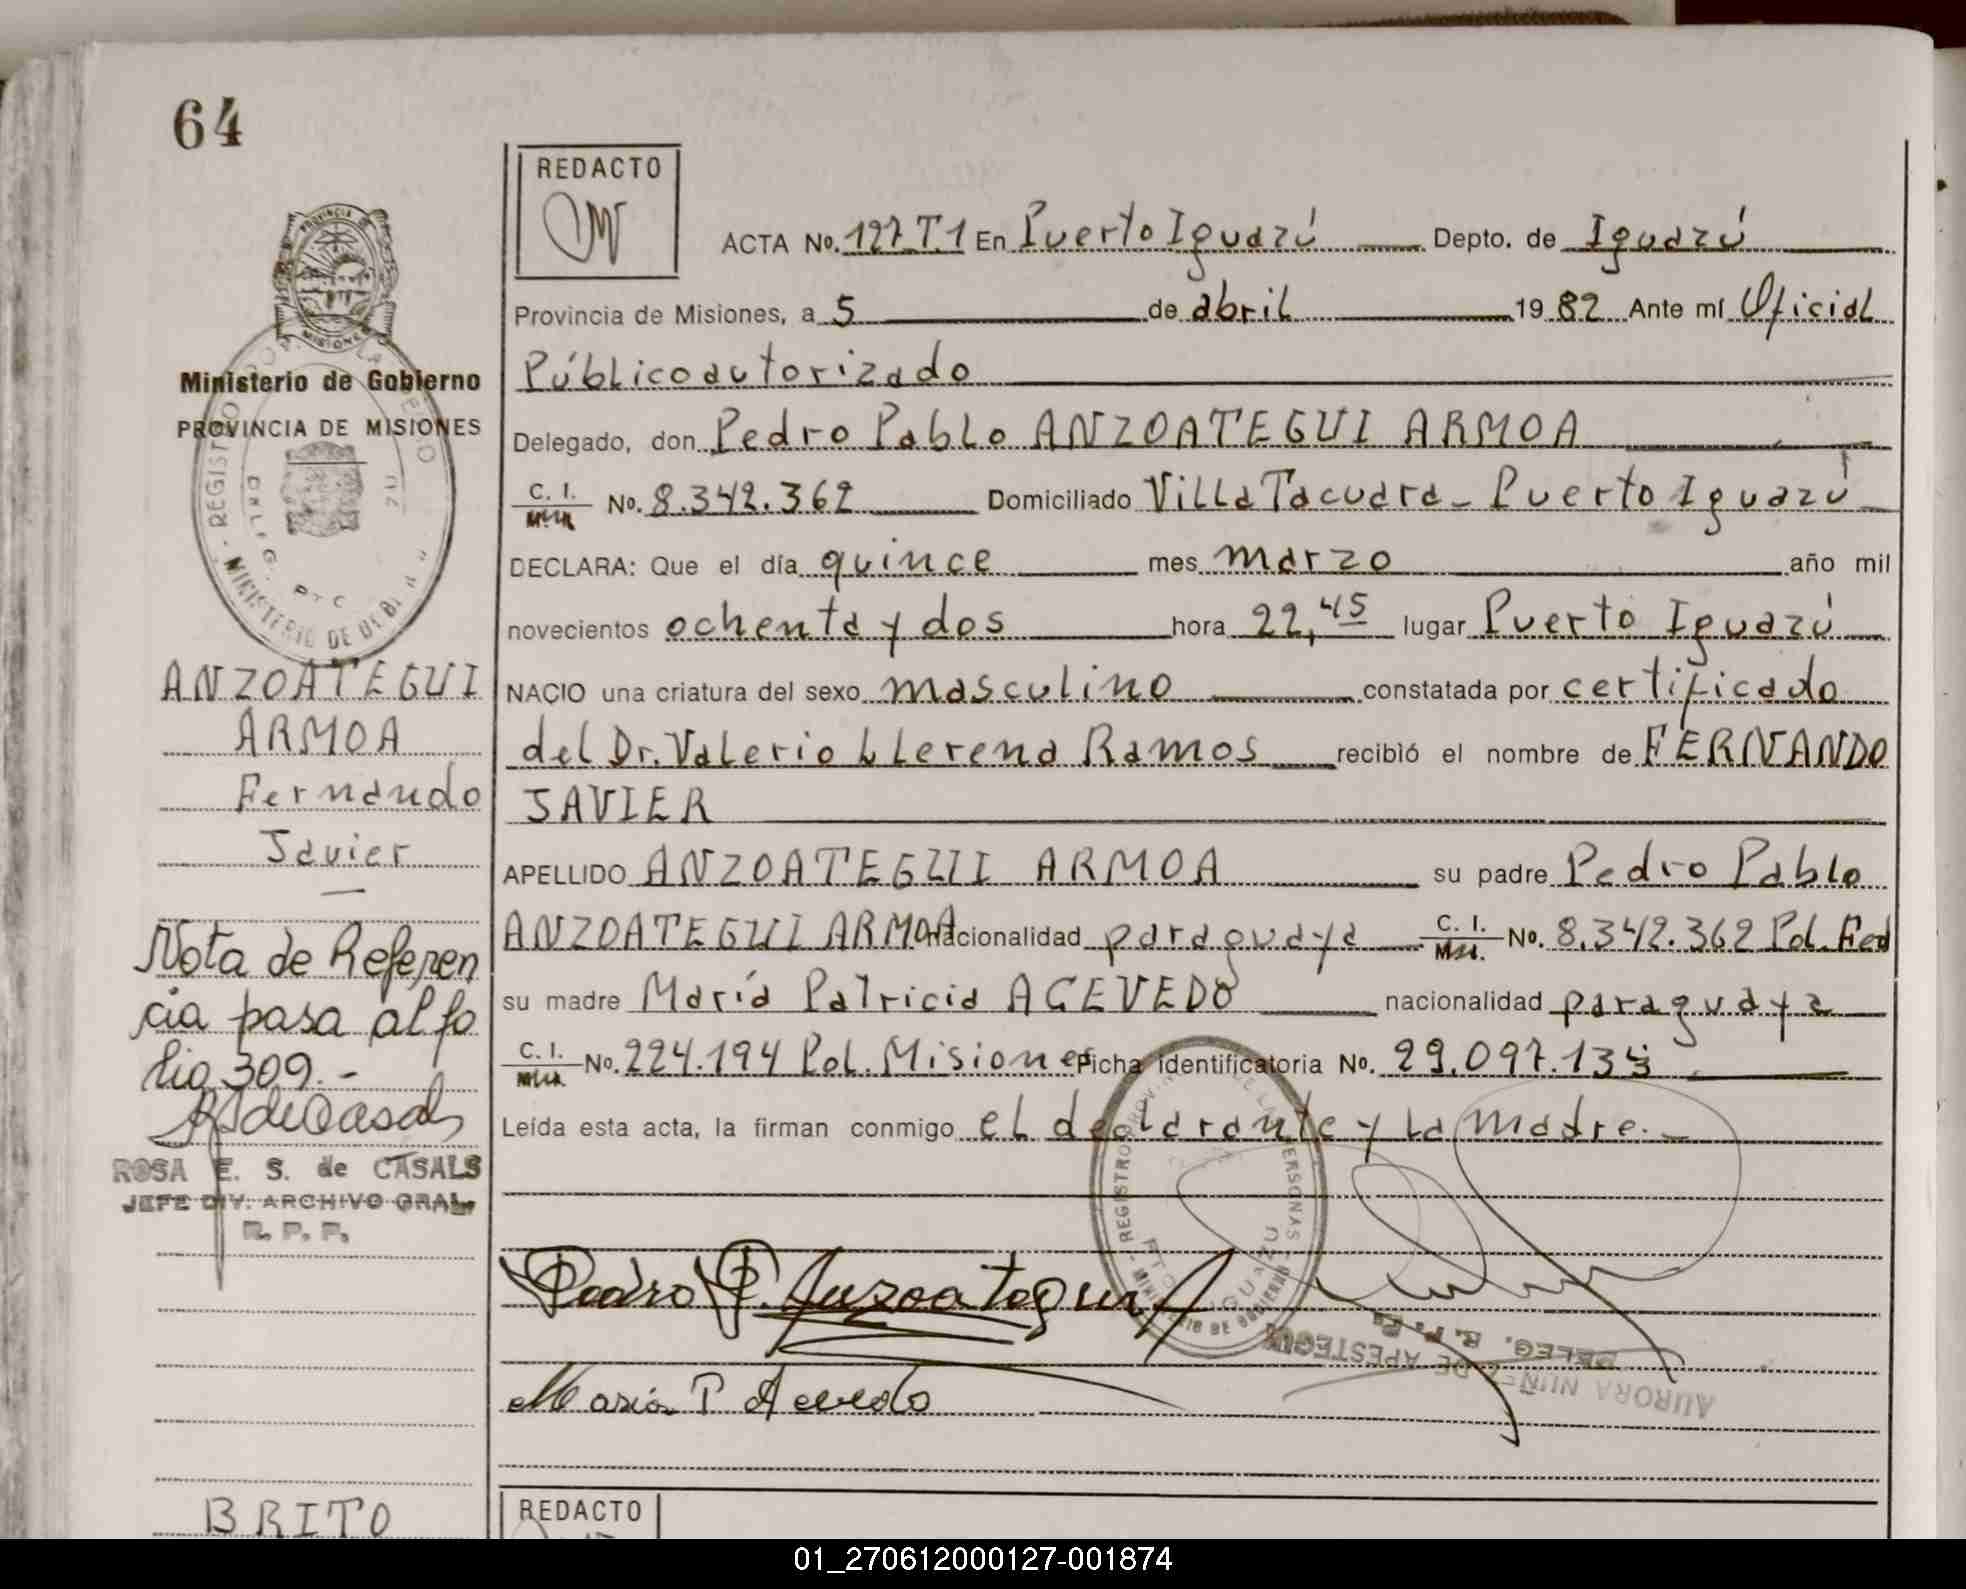 64
REDACTO
ACTA No. 127 T.1 En Puerto Iguazú Depto. de Iguazú
Provincia de Misiones, a 5 de abril 1982 Ante mí Oficial
Público autorizado
Delegado, don Pedro Pablo ANZOATEGUI ARMOA
C. I. No. 8.342.362 Domiciliado Villa Tacuara - Puerto Iguazú
DECLARA: Que el día quince mes marzo año mil
novecientos ochenta y dos hora 22,45 lugar Puerto Iguazú
NACIO una criatura del sexo masculino constatada por certificado
del Dr. Valerio Llerena Ramos recibió el nombre de FERNANDO
JAVIER
APELLIDO ANZOATEGUI ARMOA su padre Pedro Pablo
ANZOATEGUI ARMOA nacionalidad paraguaya C. I. No. 8.342.362 Pol. Fed
su madre María Patricia ACEVEDO nacionalidad paraguaya
C. I. No. 224.194 Pol. Misiones Ficha identificatoria No. 29.097.13
Leída esta acta, la firman conmigo el declarante y la madre.-
Pedro P. Anzoategui A
María P Acevedo
AURORA NUÑEZ DE APESTEGUI
DELEG. R. P. P.
REGISTRO PROVINCIAL DE LAS PERSONAS
MINISTERIO DE GOBIERNO
PTO IGUAZU
PROVINCIA DE
MISIONES
Ministerio de Gobierno
PROVINCIA DE MISIONES
REGISTRO
MINISTERIO DE
DELEG.
ANZOATEGUI
ARMOA
Fernando
Javier
Nota de Referen
cia pasa al fo
lio 309.-
RSdeCasals
ROSA E. S. de CASALS
JEFE DIV. ARCHIVO GRAL.
R. P. P.
BRITO
REDACTO
01_270612000127-001874